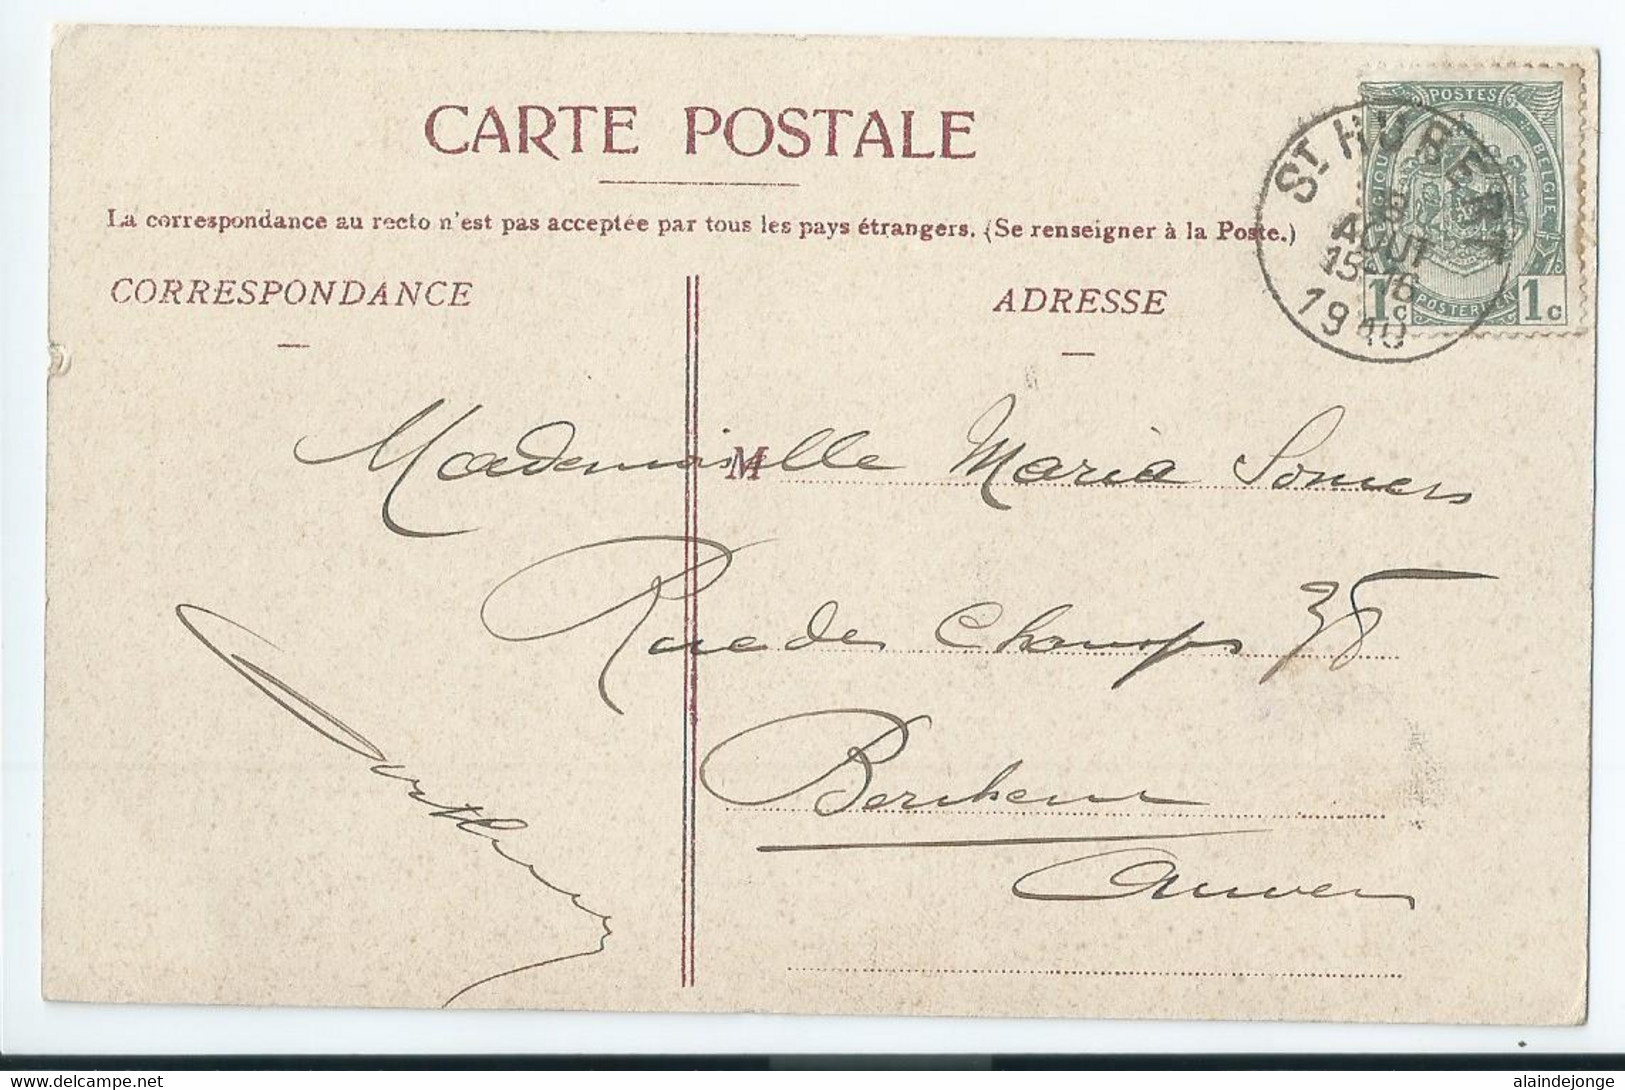 CARTE POSTALE
La correspondance au recto n'est pas acceptée par tous les pays étrangers. (Se renseigner à la Poste.)
CORRESPONDANCE
ADRESSE
POSTES
BELGIË
1c 1c
ST HUBERT
AOUT
15-16
1910
M
Mademoiselle Maria Somers
Rue des Champs 38
Berchem
Anvers
delcampe.net
alaindejonge